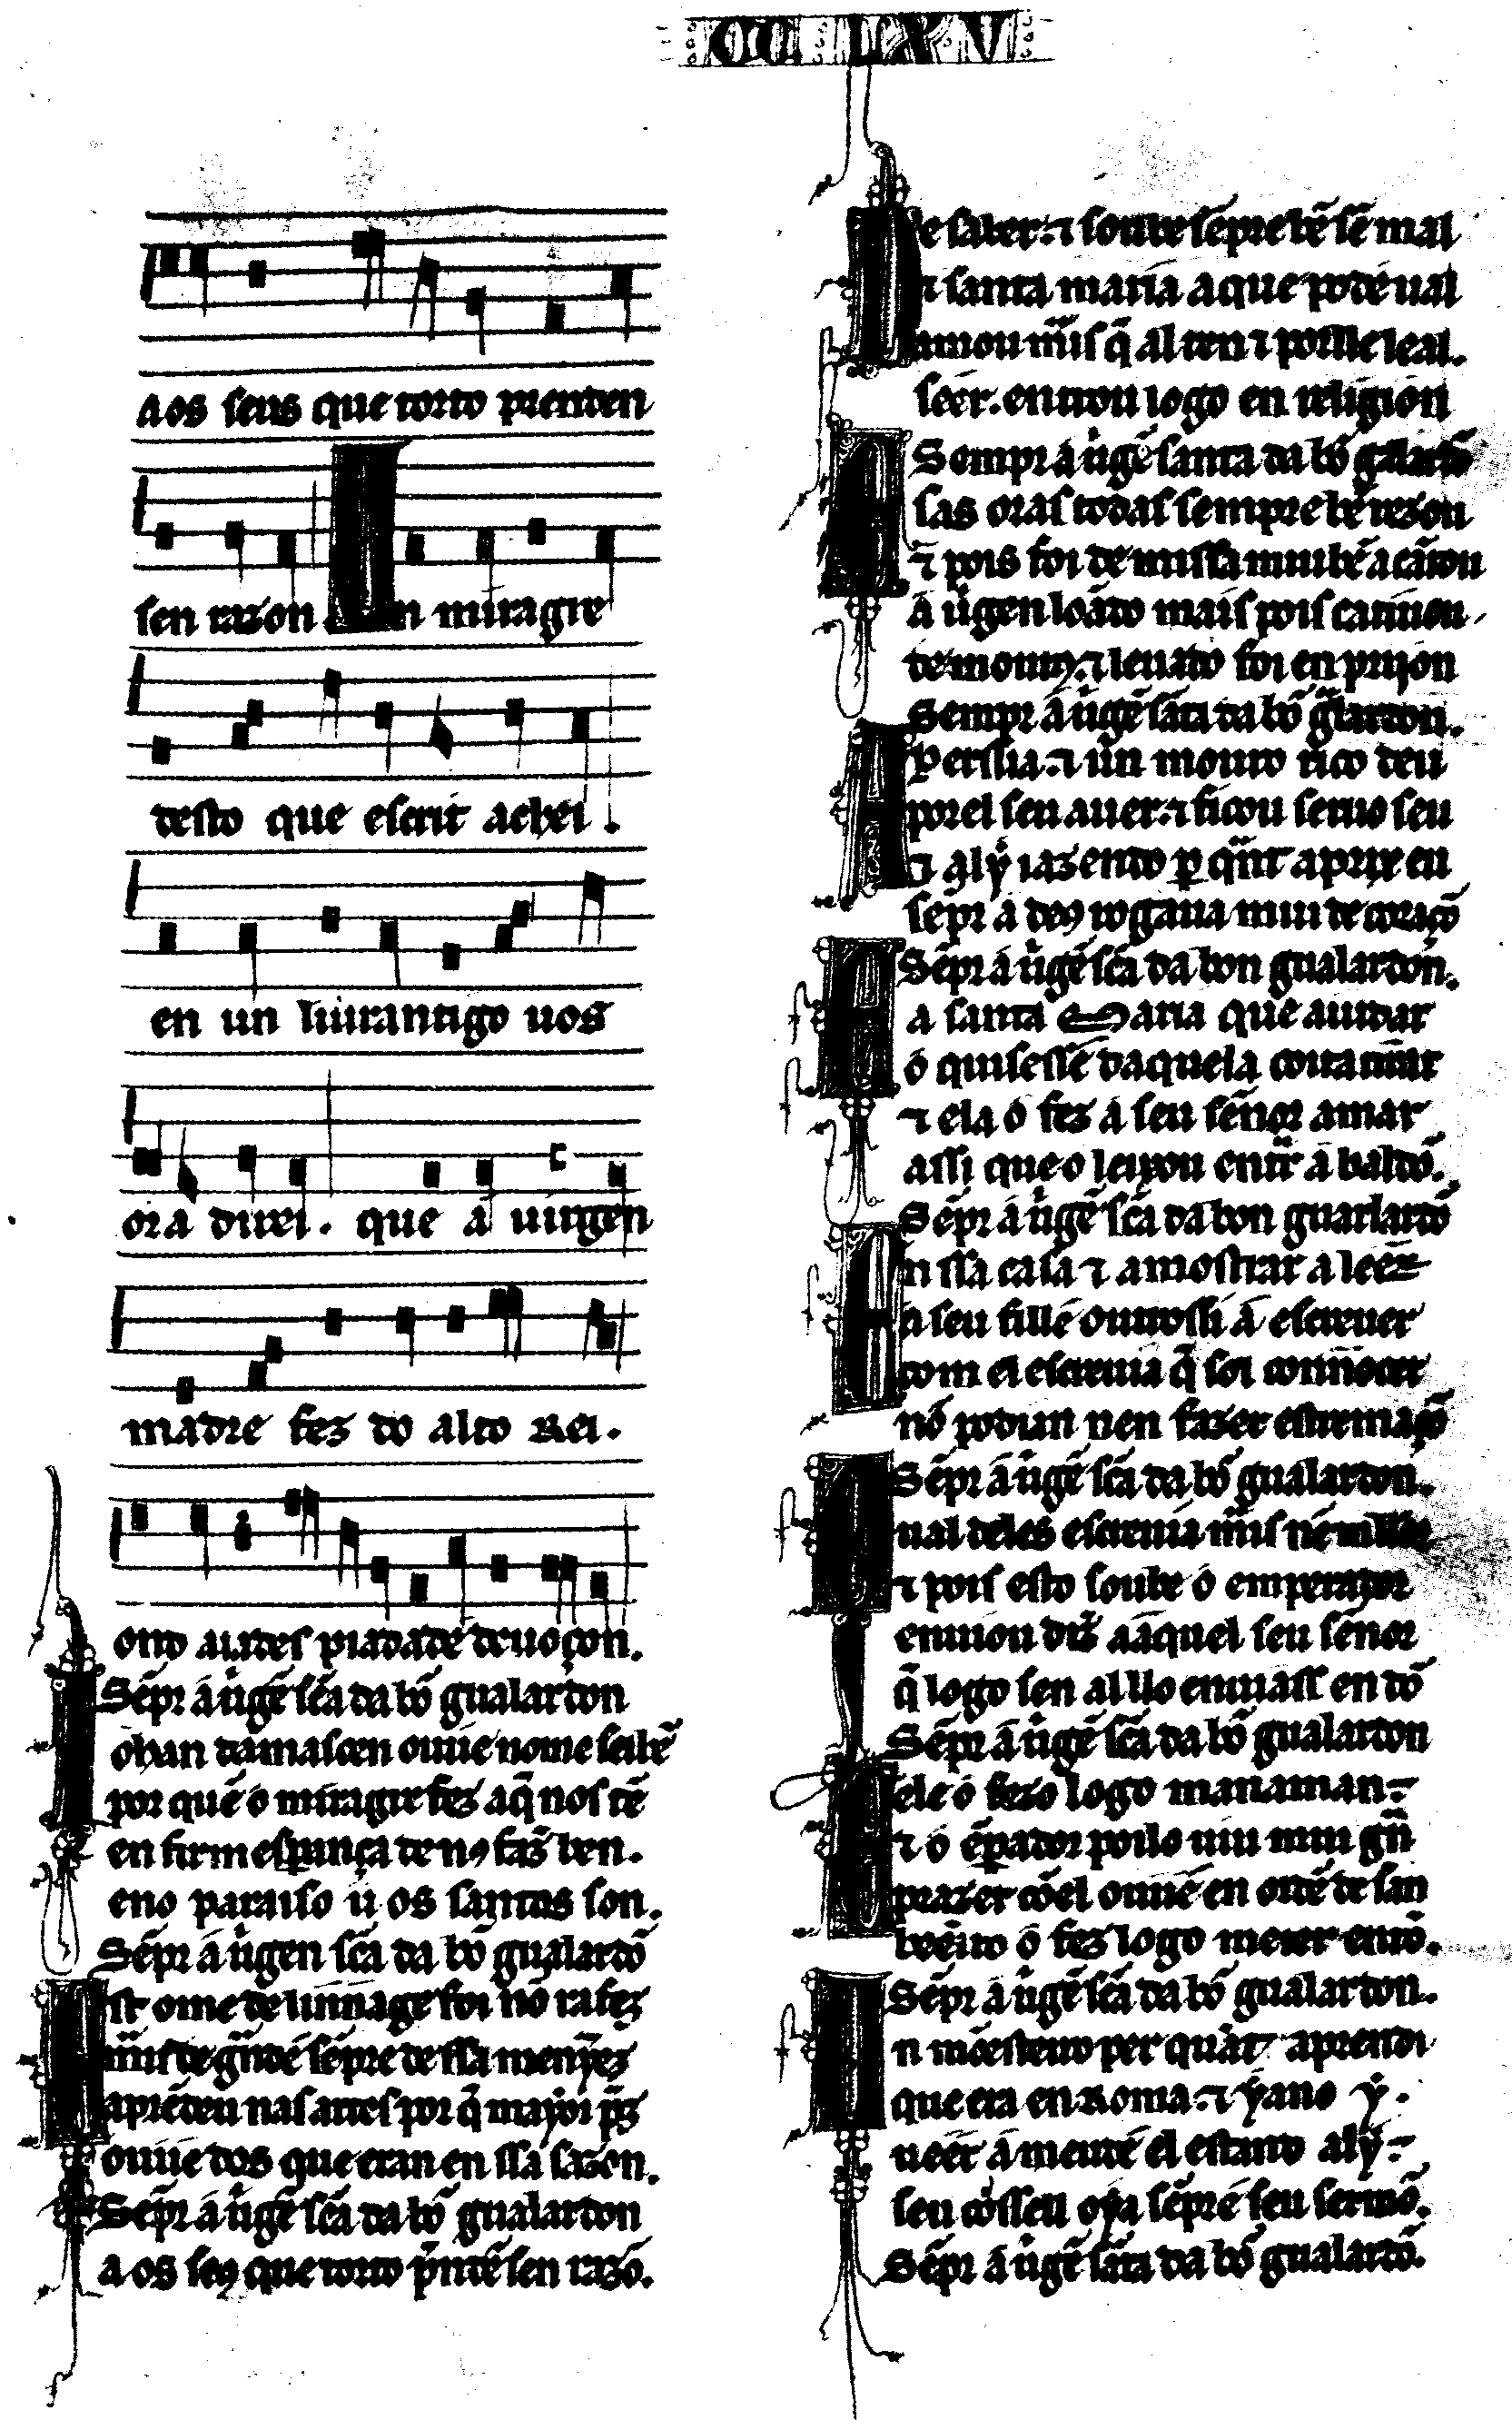 CC LXV
aos seus que torto prenden
sen razon E un miragre
desto que escrit achei.
en un livr antigo vos
ora direi. que á uirgen
madre fez do alto Rei.
ond aiades piadade deuoçon.
Sẽpr á uirgẽ sc̃a da bõ gualardon
ohan damascen ouue nome seibẽ
por quẽ o miragre fez aq̃ nos tẽ
en firm esperança de nos fazer ben.
eno parayso u os santos son.
Sẽpr á uirgen sc̃a da bõ gualardõ
st ome de linnage foi nõ rafez
mais de grande sẽpre de ssa menỹez
aprẽdeu nas artes por q̃ mayor prez
ouue dos que eran en ssa sazon.
Sẽpr á uirgẽ sc̃a da bõ gualardon
a os seus que torto prẽdẽ sen razõ.
e saber. ⁊ soube sẽpre bẽ sẽ mal
⁊ santa maria a que pod e ual
amou mais q̃ al ren ⁊ por lle leal.
seer. entrou logo en religion
Sempr á uirgẽ santa da bõ gualardõ
sas oras todas sempre bẽ rezou
⁊ pois foi de missa mui bẽ a cãtou
á uirgen loãdo mais pois catiuou
de mouros. ⁊ leuado foi en prijon
Sempr á uirgẽ sãta da bõ gualardon.
Perssia. ⁊ un mouro rico deu
por el seu auer. ⁊ ficou seruo seu
⁊ aly iazendo per quant aprix eu
sẽpr a deus rogaua mui de coraçõ
Sẽpr á uirgẽ sc̃a da bon gualardon.
a santa Maria que aiudar
o quisesse daquela coita mur
⁊ ela o fez a seu sẽnor amar
assi que o leixou entrar a baldõ.
Sẽpr á uirgẽ sc̃a da bon guarlardõ
n ssa casa ⁊ amostrar a leer
a seu fill e outrossi a escreuer
com el escreuia q̃ sol connocer
nõ podian nen fazer estremaçõ
Sẽpr á uirgẽ sc̃a da bõ gualardon.
ual deles escreuia mais nen millor
⁊ pois esto soube o emperador
enuiou dizer a aquel seu sẽnor
q̃ logo sen al llo enuiass en dõ
Sẽpr á uirgẽ sc̃a da bõ gualardon
ele o fezo logo manaman.
⁊ o ẽperador poilo uiu mui gran
prazer cõ el ouue en ordẽ de san
beeito o fez logo meter entõ.
Sẽpr á uirgẽ sc̃a da bõ gualardon.
n mõesteiro per quant aprendi
que era en Roma. ⁊ yano y.
ueer a meude el estand aly.
seu cõssell oya sẽpre seu sermõ.
Sẽpr á uirgẽ sãta da bõ gualardõ.